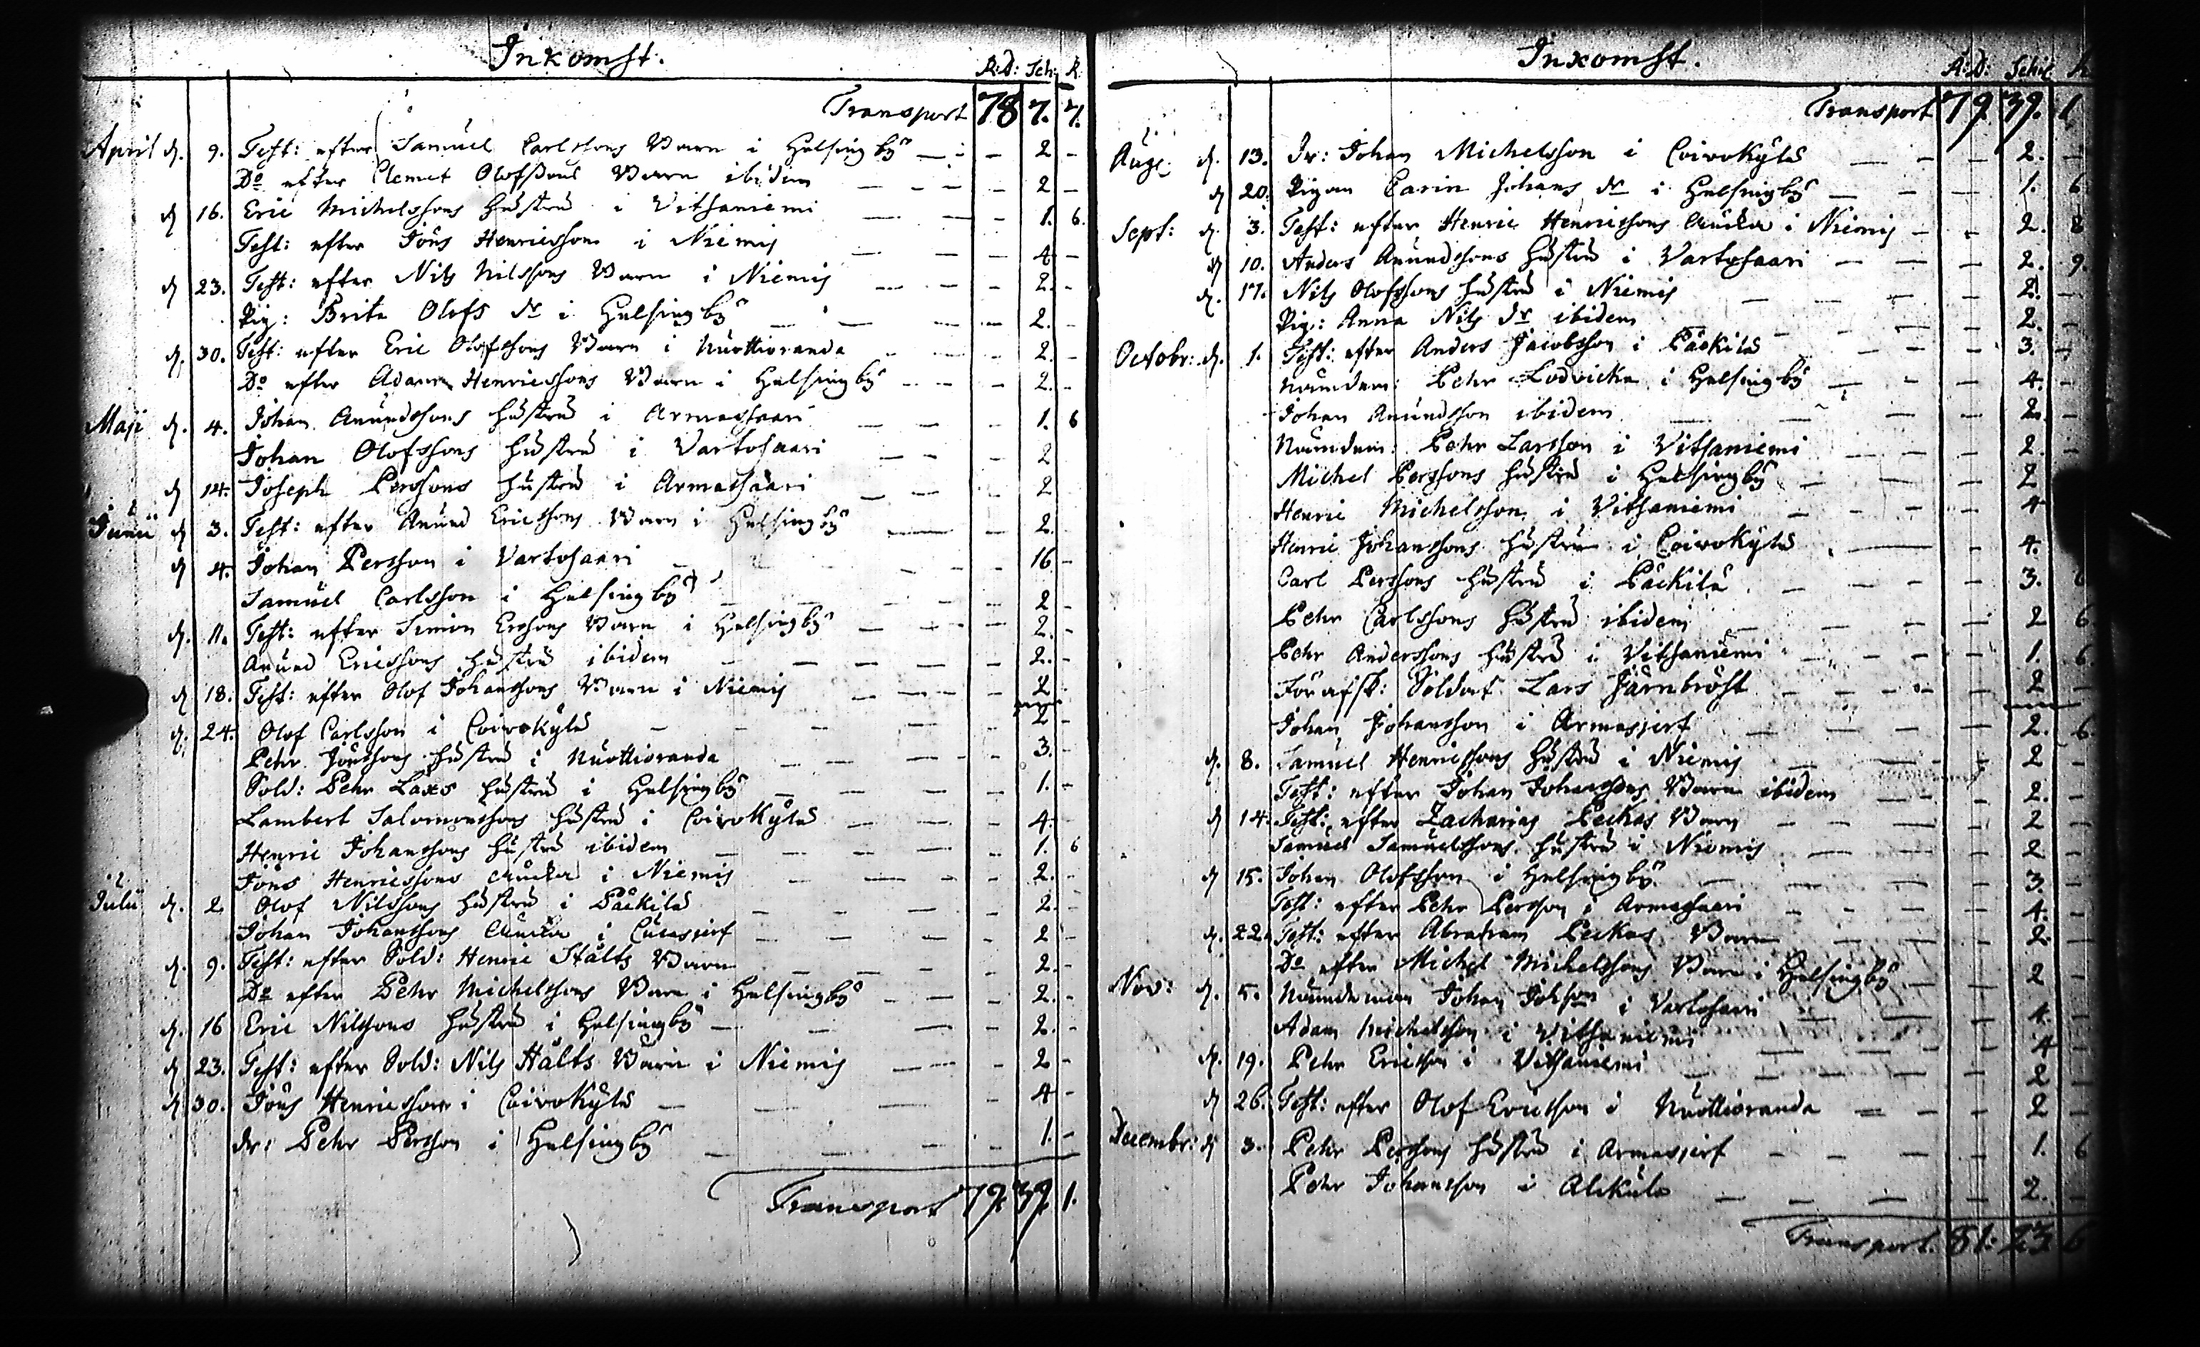 Inkomst.
R:D: Sch: R.
Transport 78 7. 7.
April d. 9. Test: efter Samuel Carlssons Barn i Helsingby — 2 -
Do efter Clemet Olofssons Barn ibidem — 2 -
d 16. Eric Michelssons hustru i Vitsaniemi — 1. 6.
Test: efter Jöns Henricsson i Niemis — 4 -
d 23. Test: efter Nils Nilssons Barn i Niemis — 2. -
Pig: Brita Olofs dr i Helsingby — 2. -
d. 30. Test: efter Eric Olofssons Barn i Nuottioranda — 2. -
Do efter Adam Henricssons Barn i Helsingby — 2. -
Maji d. 4. Johan Anundssons hustru i Armassaari — 1. 6
Johan Olofssons hustru i Vartosaari — 2
d 14. Joseph Perssons hustru i Armassaari — 2
Junii d 3. Test: efter Anund Ericssons Barn i Helsingby — 2.
d 4. Johan Persson i Vartosaari — 16 -
Samuel Carlsson i Helsingby — 2 -
d. 11. Test: efter Simon Ersons Barn i Helsingby — 2. -
Anund Ericssons hustru ibidem — 2. -
d 18. Test: efter Olof Johanssons Barn i Niemis — 2
d. 24. Olof Carlsson i Coivokylä — 2 -
Pehr Jönssons hustru i Nuottioranda — 3. -
Sold: Pehr Laxs hustru i Helsingby — 1. -
Lambert Salomonssons hustru i Coivokylä — 4. -
Henric Johanssons hustru ibidem — 1. 6
Jöns Henricssons Änka i Niemis — 2. -
Julii d. 2 Olof Nilssons hustru i Päckilä — 2. -
Johan Johanssons Änka i — 2 -
d. 9. Test: efter Sold: Henric Stålts Barn — 2. -
Do efter Pehr Michelssons Barn i Helsingby — 2. -
d. 16 Eric Nilssons hustru i Helsingby — 2. -
d 23. Test: efter Sold: Nils Hålts Barn i Niemis — 2 -
d 30. Jöns Henricsson i Coivokylä — 4 -
dr: Pehr Persson i Helsingby — 1. -
Transport 79. 39. 1.
Inkomst.
R:D: Schil R
Transport 79. 39. 1
Aug: d. 13. Dr: Johan Michelsson i Coivokylä — 2. -
d 20. Pigan Carin Johans dr i Helsingby — 1. 6
Sept: d. 3. Test: efter Henric Henricssons Änka i Niemis — 2. 8
d 10. Anders Anundssons hustru i Vartosaari — 2. 9.
d. 17. Nils Olofssons hustru i Niemis — 2. -
Pig: Anna Nils dr ibidem — 2. -
Octobr: d. 1. Test: efter Anders Jacobsson i Päckilä — 3. -
Nämdem: Pehr Lodvicka i Helsingby — 4. -
Johan Anundsson ibidem — 2. -
Nämdem: Pehr Larsson i Vitsaniemi — 2. -
Michel Perssons hustru i Helsingby — 2
Henric Michelsson i Vitsaniemi — 4
Henric Johanssons hustru i Coivokylä — 4.
Carl Perssons hustru i Päckilä — 3. 6
Pehr Carlssons hustru ibidem — 2 6
Pehr Anderssons hustru i Vitsaniemi — 1. 6
För afsk: Soldat Lars Järnbröst — 2 -
Johan Johansson i Armasjerf — 2. 6.
d. 8. Samuel Henricssons hustru i Niemis — 2 -
Test: efter Johan Johanssons Barn ibidem — 2. -
d 14. Test: efter Zacharias Peckas Barn — 2 -
Samuel Samuelssons hustru i Niemis — 2 -
d 15. Johan Olofsson i Helsingby — 3. -
Test: efter Pehr Persson i Armassaari — 4. -
d. 22. Test: efter Abraham Peckas Barn — 2. -
Do efter Michel Michelssons Barn i Helsingby — 2 -
Nov: d. 5. Nämdeman Johan Johsson i Vartosaari — 4. -
Adam Michelsson i Vitsaniemi — 4 -
d. 19. Pehr Ericsson i Vitsaniemi — 2 -
d 26. Test: efter Olof Ericsson i Nuottioranda — 2 -
Decembr: d 3. Pehr Perssons hustru i Armasjerf — 1. 6
Pehr Johansson i Alikulä — 2. -
Transport. 81. 23. 6